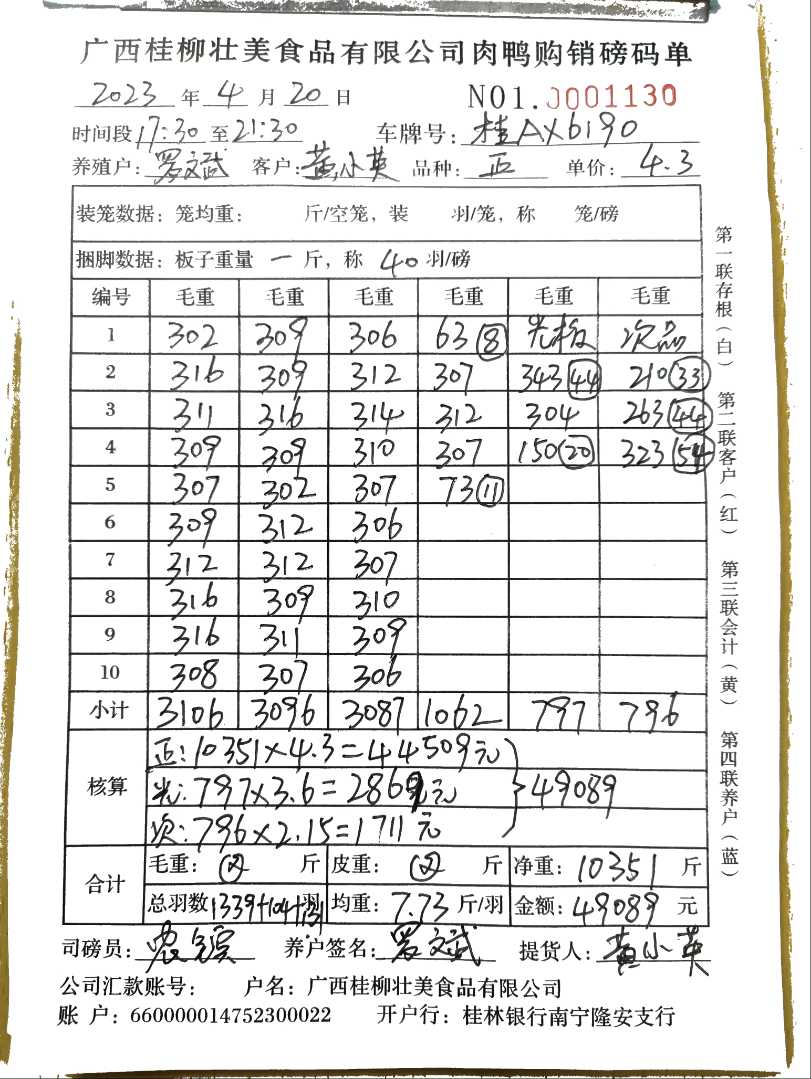 广西桂柳壮美食品有限公司肉鸭购销磅码单
2023 年 4 月 20 日 NO1.0001130
时间段 17:30 至 21:30 车牌号: 桂AX6190
养殖户: 罗文斌 客户: 黄小英 品种: 正 单价: 4.3
装笼数据: 笼均重: 斤/空笼, 装 羽/笼, 称 笼/磅
捆脚数据: 板子重量 一 斤, 称 40 羽/磅
编号 毛重 毛重 毛重 毛重 毛重 毛重
1 302 309 306 63⑧ 光板 次品
2 316 309 312 307 343(44) 210(33)
3 311 316 314 312 304 263(44)
4 309 309 310 307 150(20) 323(54)
5 307 302 307 73⑪
6 309 312 306
7 312 312 307
8 316 309 310
9 316 311 309
10 308 307 306
小计 3106 3096 3087 1062 797 796
核算 正: 10351×4.3=44509元
光: 797×3.6=2869元 }49089
次: 796×2.15=1711元
合计 毛重: 斤 皮重: 斤 净重: 10351 斤
总羽数 1339+104+131羽 均重: 7.73 斤/羽 金额: 49089 元
司磅员: 养户签名: 罗文斌 提货人: 黄小英
公司汇款账号: 户名: 广西桂柳壮美食品有限公司
账 户: 660000014752300022 开户行: 桂林银行南宁隆安支行
第一联存根(白) 第二联客户(红) 第三联会计(黄) 第四联养户(蓝)